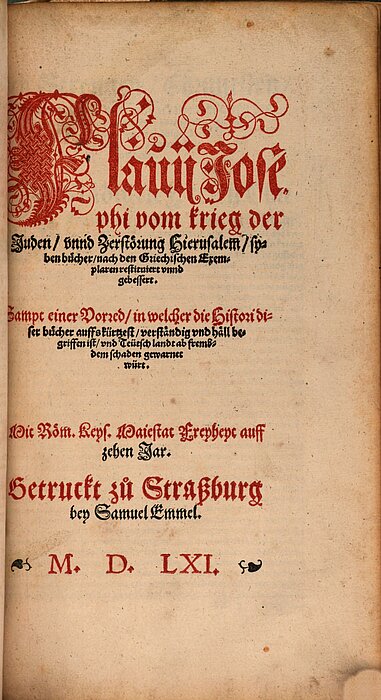 Flauij Jose
phi vom krieg der
Juden / vnnd Zerstörung Hierusalem / sy-
ben bücher / nach den Griechischen Exem-
plaren restituiert vnnd
gebessert.
Sampt einer Vorred / in welcher die Histori di-
ser bücher auffs kürtzest / verständig vnd häll be-
griffen ist / vnd Teütsch landt ab fremb-
dem schaden gewarnet
würt.
Mit Röm. Keys. Maiestat Freyheyt auff
zehen Jar.
Getruckt zů Straßburg
bey Samuel Emmel.
M. D. LXI.